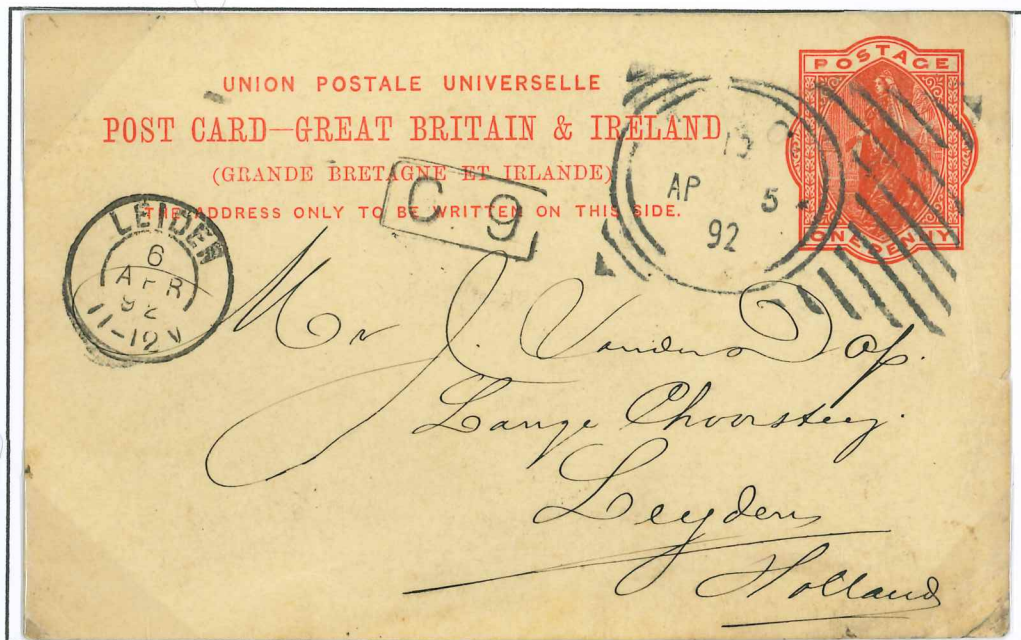 UNION POSTALE UNIVERSELLE
POST CARD—GREAT BRITAIN & IRELAND
(GRANDE BRETAGNE ET IRLANDE)
THE ADDRESS ONLY TO BE WRITTEN ON THIS SIDE.
POSTAGE
ONE PENNY
AP 5
92
C 9
LEIDEN
6
APR
92
11-12 V
Mr J. Vander
Lange
Leyden
Holland